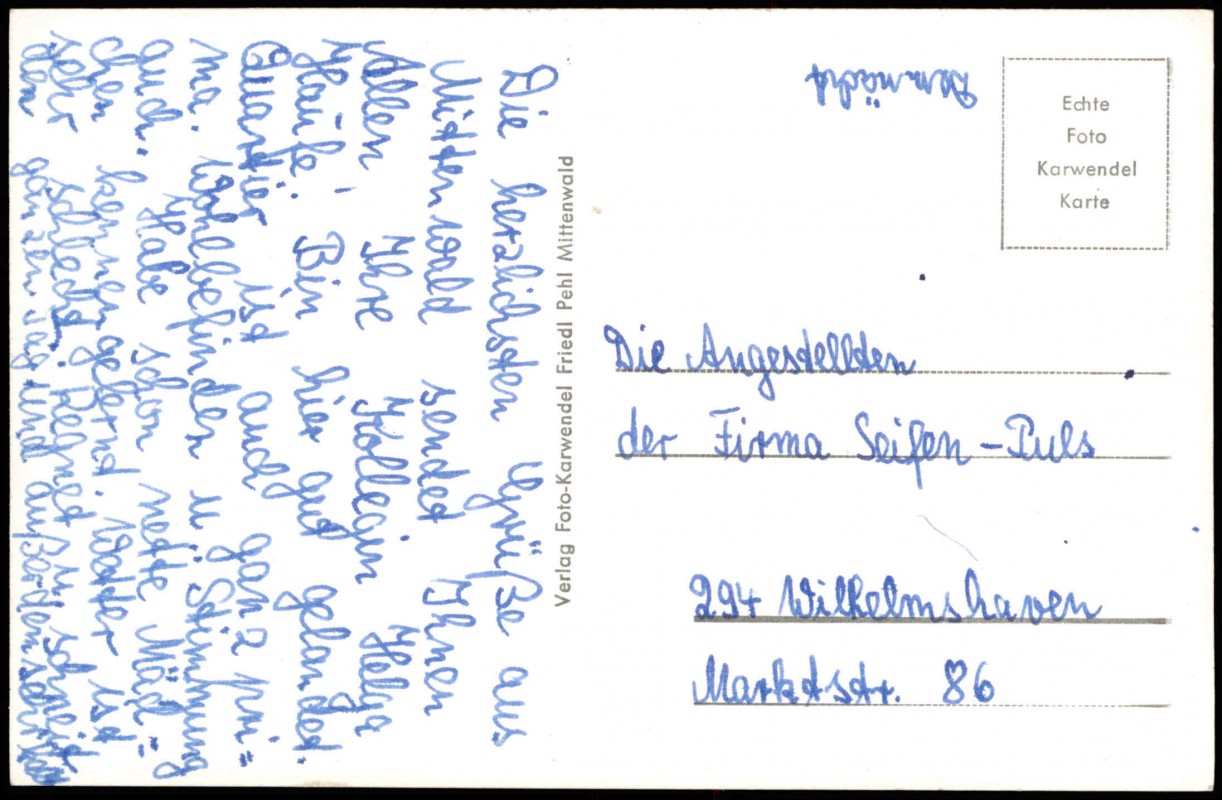 Die herzlichsten Grüße aus
Mittenwald sendet Ihnen
Allen, Ihre Kollegin Helga
Bin hier gut gelandet.
Quartier ist auch ganz pri=
ma. Wohlbefinden u. Stimmung
auch. Habe schon nette Mäd-
chen kennen gelernt. Wetter ist
sehr schlecht. Regnet u. schneit
den ganzen Tag und außerdem
Verlag Foto-Karwendel Friedl Pehl Mittenwald
Demnächst
Echte
Foto
Karwendel
Karte
Die Angestellten
der Firma Seifen-Puls
294 Wilhelmshaven
Marktstr. 86